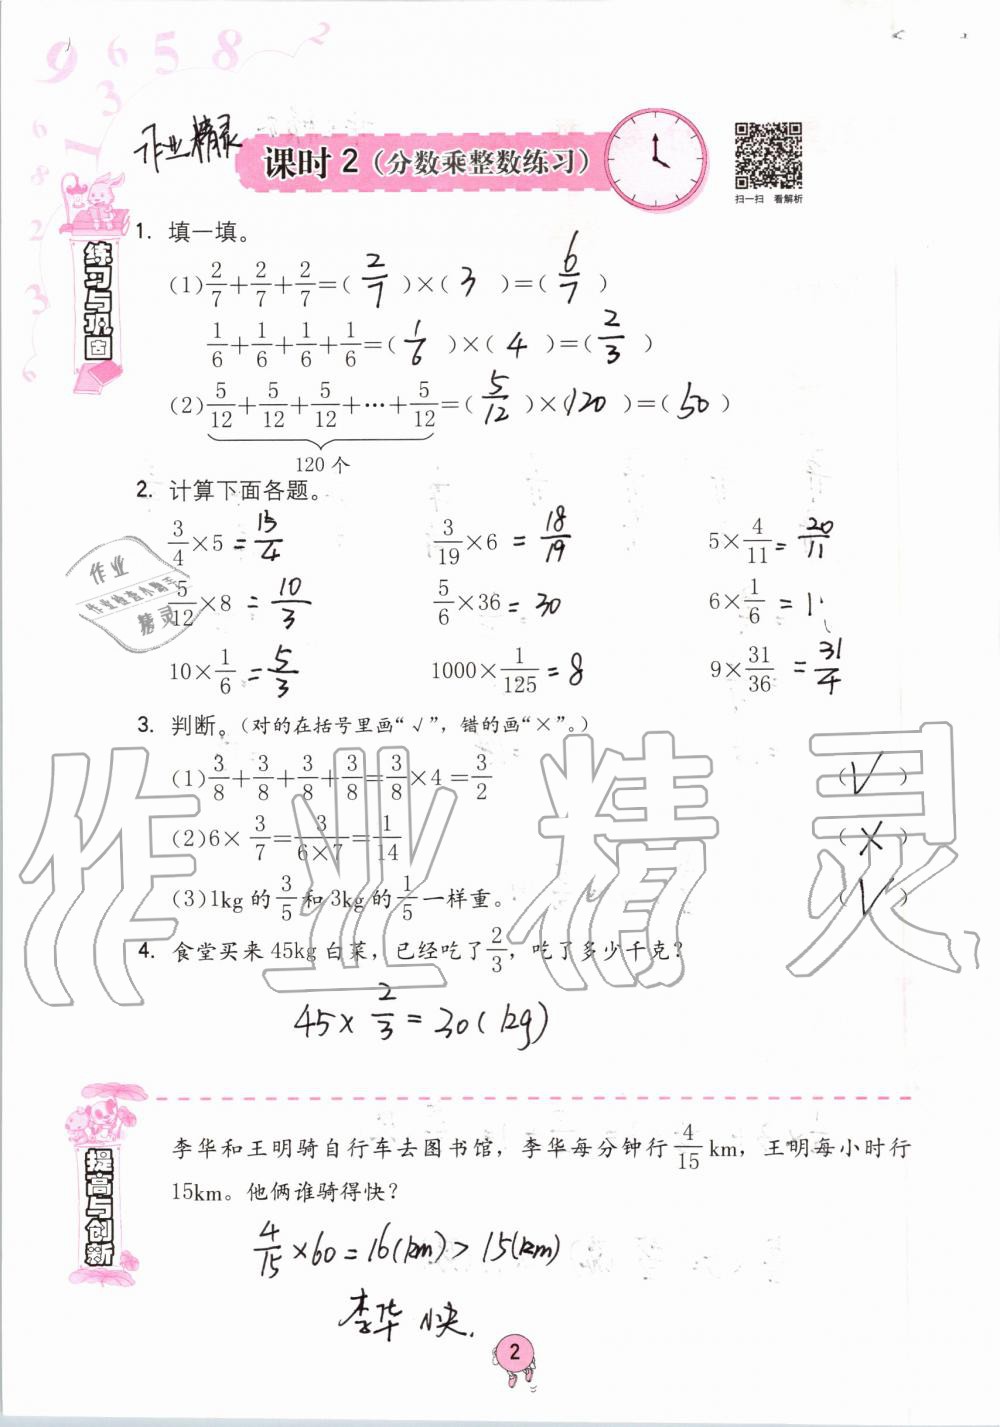 9 6 5 8 2
作业精灵
课时 2（分数乘整数练习）
扫一扫 看解析
练习与巩固
1. 填一填。
(1) 2/7 + 2/7 + 2/7 = ( 2/7 ) × ( 3 ) = ( 6/7 )
1/6 + 1/6 + 1/6 + 1/6 = ( 1/6 ) × ( 4 ) = ( 2/3 )
(2) 5/12 + 5/12 + 5/12 + … + 5/12 = ( 5/12 ) × ( 120 ) = ( 50 )
120 个
2. 计算下面各题。
3/4 × 5 = 15/4   3/19 × 6 = 18/19   5 × 4/11 = 20/11
5/12 × 8 = 10/3   5/6 × 36 = 30   6 × 1/6 = 1
10 × 1/6 = 5/3   1000 × 1/125 = 8   9 × 31/36 = 31/4
3. 判断。（对的在括号里画“√”，错的画“×”。）
(1) 3/8 + 3/8 + 3/8 + 3/8 = 3/8 × 4 = 3/2 ( √ )
(2) 6 × 3/7 = 3/(6×7) = 1/14 ( × )
(3) 1kg 的 3/5 和 3kg 的 1/5 一样重。 ( √ )
4. 食堂买来 45kg 白菜，已经吃了 2/3，吃了多少千克？
45 × 2/3 = 30 (kg)
提高与创新
李华和王明骑自行车去图书馆，李华每分钟行 4/15 km，王明每小时行
15km。他俩谁骑得快？
4/15 × 60 = 16 (km) > 15 (km)
李华快.
2
作业精灵
作业
作业检查小助手
精灵